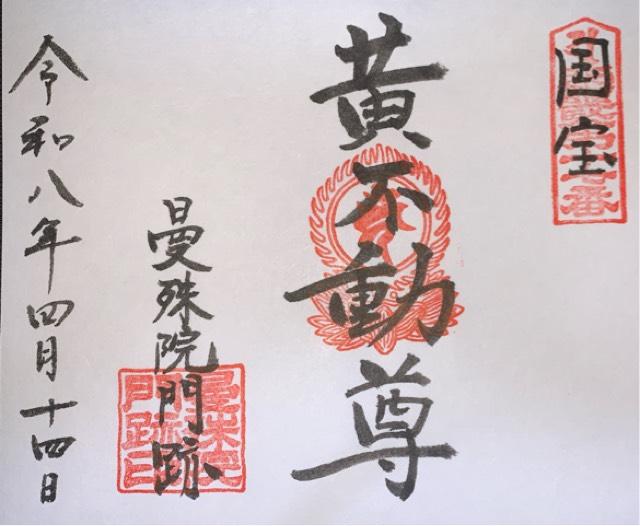 国宝
黄不動尊
曼殊院門跡
令和八年四月十四日
曼殊院門跡印